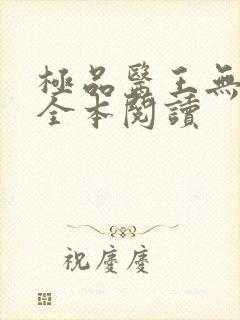 極品醫王無
全本閱讀
祝慶慶